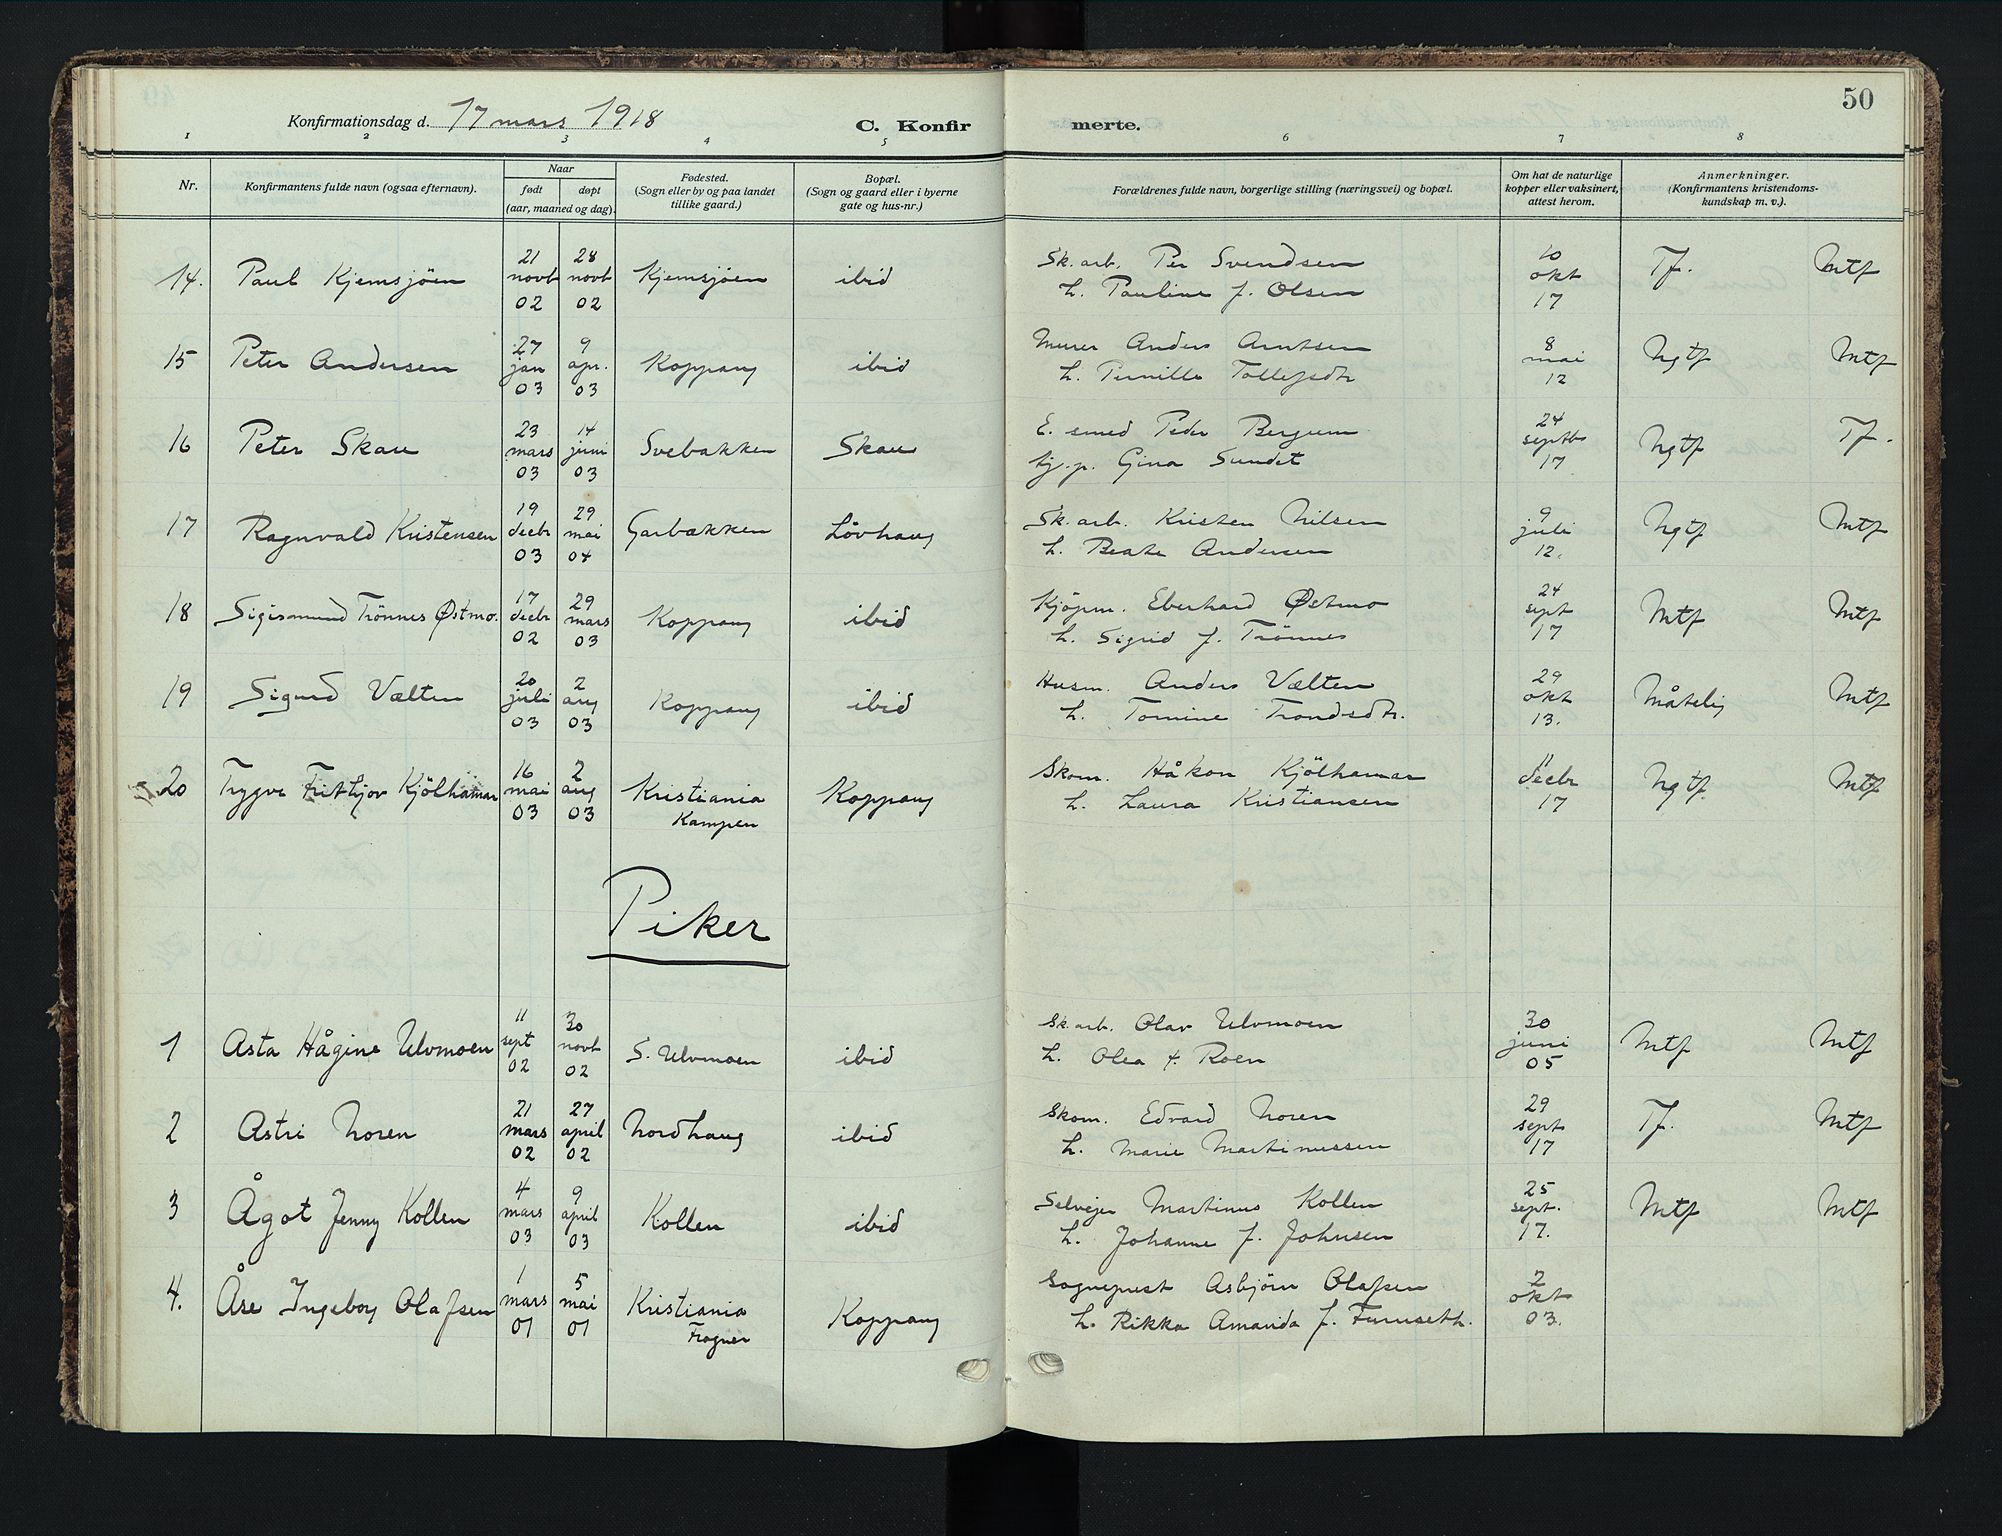 50
Konfirmationsdag d. 17 mars 1918 C. Konfirmerte.
1 2 3 4 5 6 7 8
Nr.
Konfirmantens fulde navn (ogsaa efternavn).
Naar
født døpt
(aar, maaned og dag).
Fødested.
(Sogn eller by og paa landet
tillike gaard.)
Bopæl.
(Sogn og gaard eller i byerne
gate og hus-nr.)
Forældrenes fulde navn, borgerlige stilling (næringsvei) og bopæl.
Om hat de naturlige
kopper eller vaksinert,
attest herom.
Anmerkninger.
(Konfirmantens kristendoms-
kundskap m. v.).
14. Paul Kjemsjöen 21 novb 02 28 novb 02 Kjemsjöen ibid Sk. arb. Per Svendsen
L. Pauline f. Olsen 10 okt 17 Tf. Mtf
15 Peter Andersen 27 jan 03 9 apr. 03 Koppang ibid Murer Anders Arntsen
L. Pernille Tollefsdtr 8 mai 12 Ngtf Mtf
16 Peter Skau 23 mars 03 14 juni 03 Svebakken Skau E. smed Peder Bergum
tj. p. Gina Sundet 24 septb 17 Ngtf Tf.
17 Ragnvald Kristensen 19 decbr 03 29 mai 04 Garbækken Lövhaug Sk. arb. Kristen Nilsen
L. Beate Andersen 9 juli 12. Ngtf Mtf
18 Sigismund Trönnes Østmo. 17 decbr 02 29 mars 03 Koppang ibid Kjöpm. Eberhard Østmo
L. Sigrid f. Trönnes 24 sept 17 Mtf Mtf
19 Sigurd Vælten 20 juli 03 2 aug 03 Koppang ibid Husm. Anders Vælten
L. Tomine Trondsdtr. 29 okt 13. Måtelig Mtf
20 Trygve Frithjov Kjölhamar 16 mai 03 2 aug 03 Kristiania Kampen Koppang Skom. Håkon Kjölhamar
L. Laura Kristiansen 11 decbr 17 Ngtf. Mtf
Piker
1 Asta Hågine Ulvmoen 11 sept 02 30 novb 02 S. Ulvmoen ibid Sk. arb. Olav Ulvmoen
L. Olea f. Roen 30 juni 05 Mtf Mtf
2 Astri Noren 21 mars 02 27 april 02 Nordhaug ibid Skom. Edvard Noren
L. Marie Martinussen 29 sept 17 Tf. Mtf
3 Ågot Jenny Kollen 4 mars 03 9 april 03 Kollen ibid Selvejer Martinus Kollen
L. Johanne f. Johnsen 25 sept. 17. Mtf Mtf
4. Åse Ingeborg Olafsen 1 mars 01 5 mai 01 Kristiania Frogner Koppang Sogneprest Asbjörn Olafsen
L. Rikka Amanda f. Furuseth. 2 okt 03.